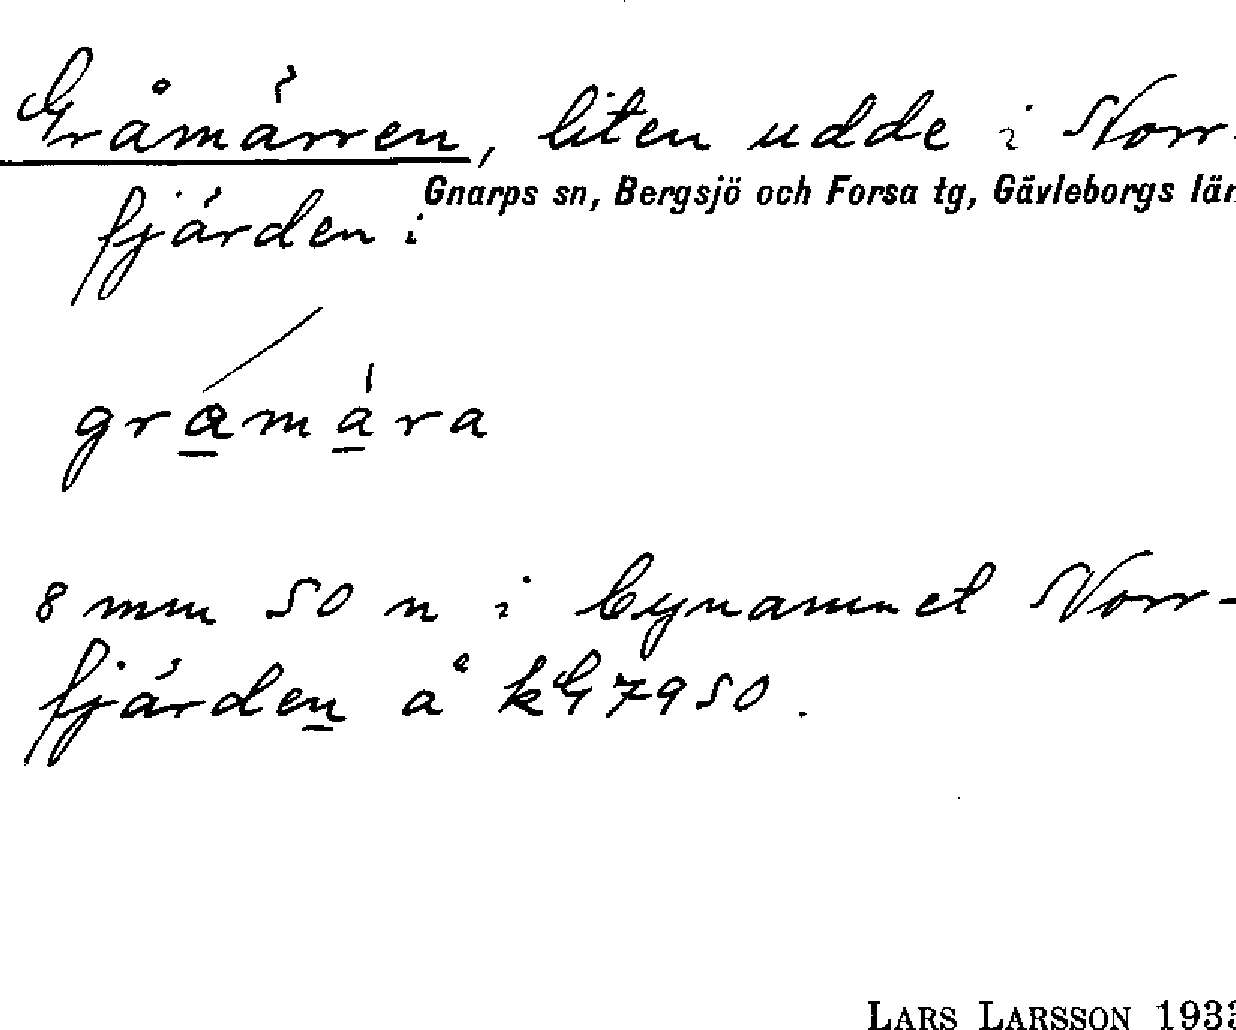 Gråmärren, liten udde i Norr-
Gnarps sn, Bergsjö och Forsa tg, Gävleborgs län
fjärden:
gramara
8 mm SO n i bynamnet Norr-
fjärden å kG 7950.
LARS LARSSON 1933